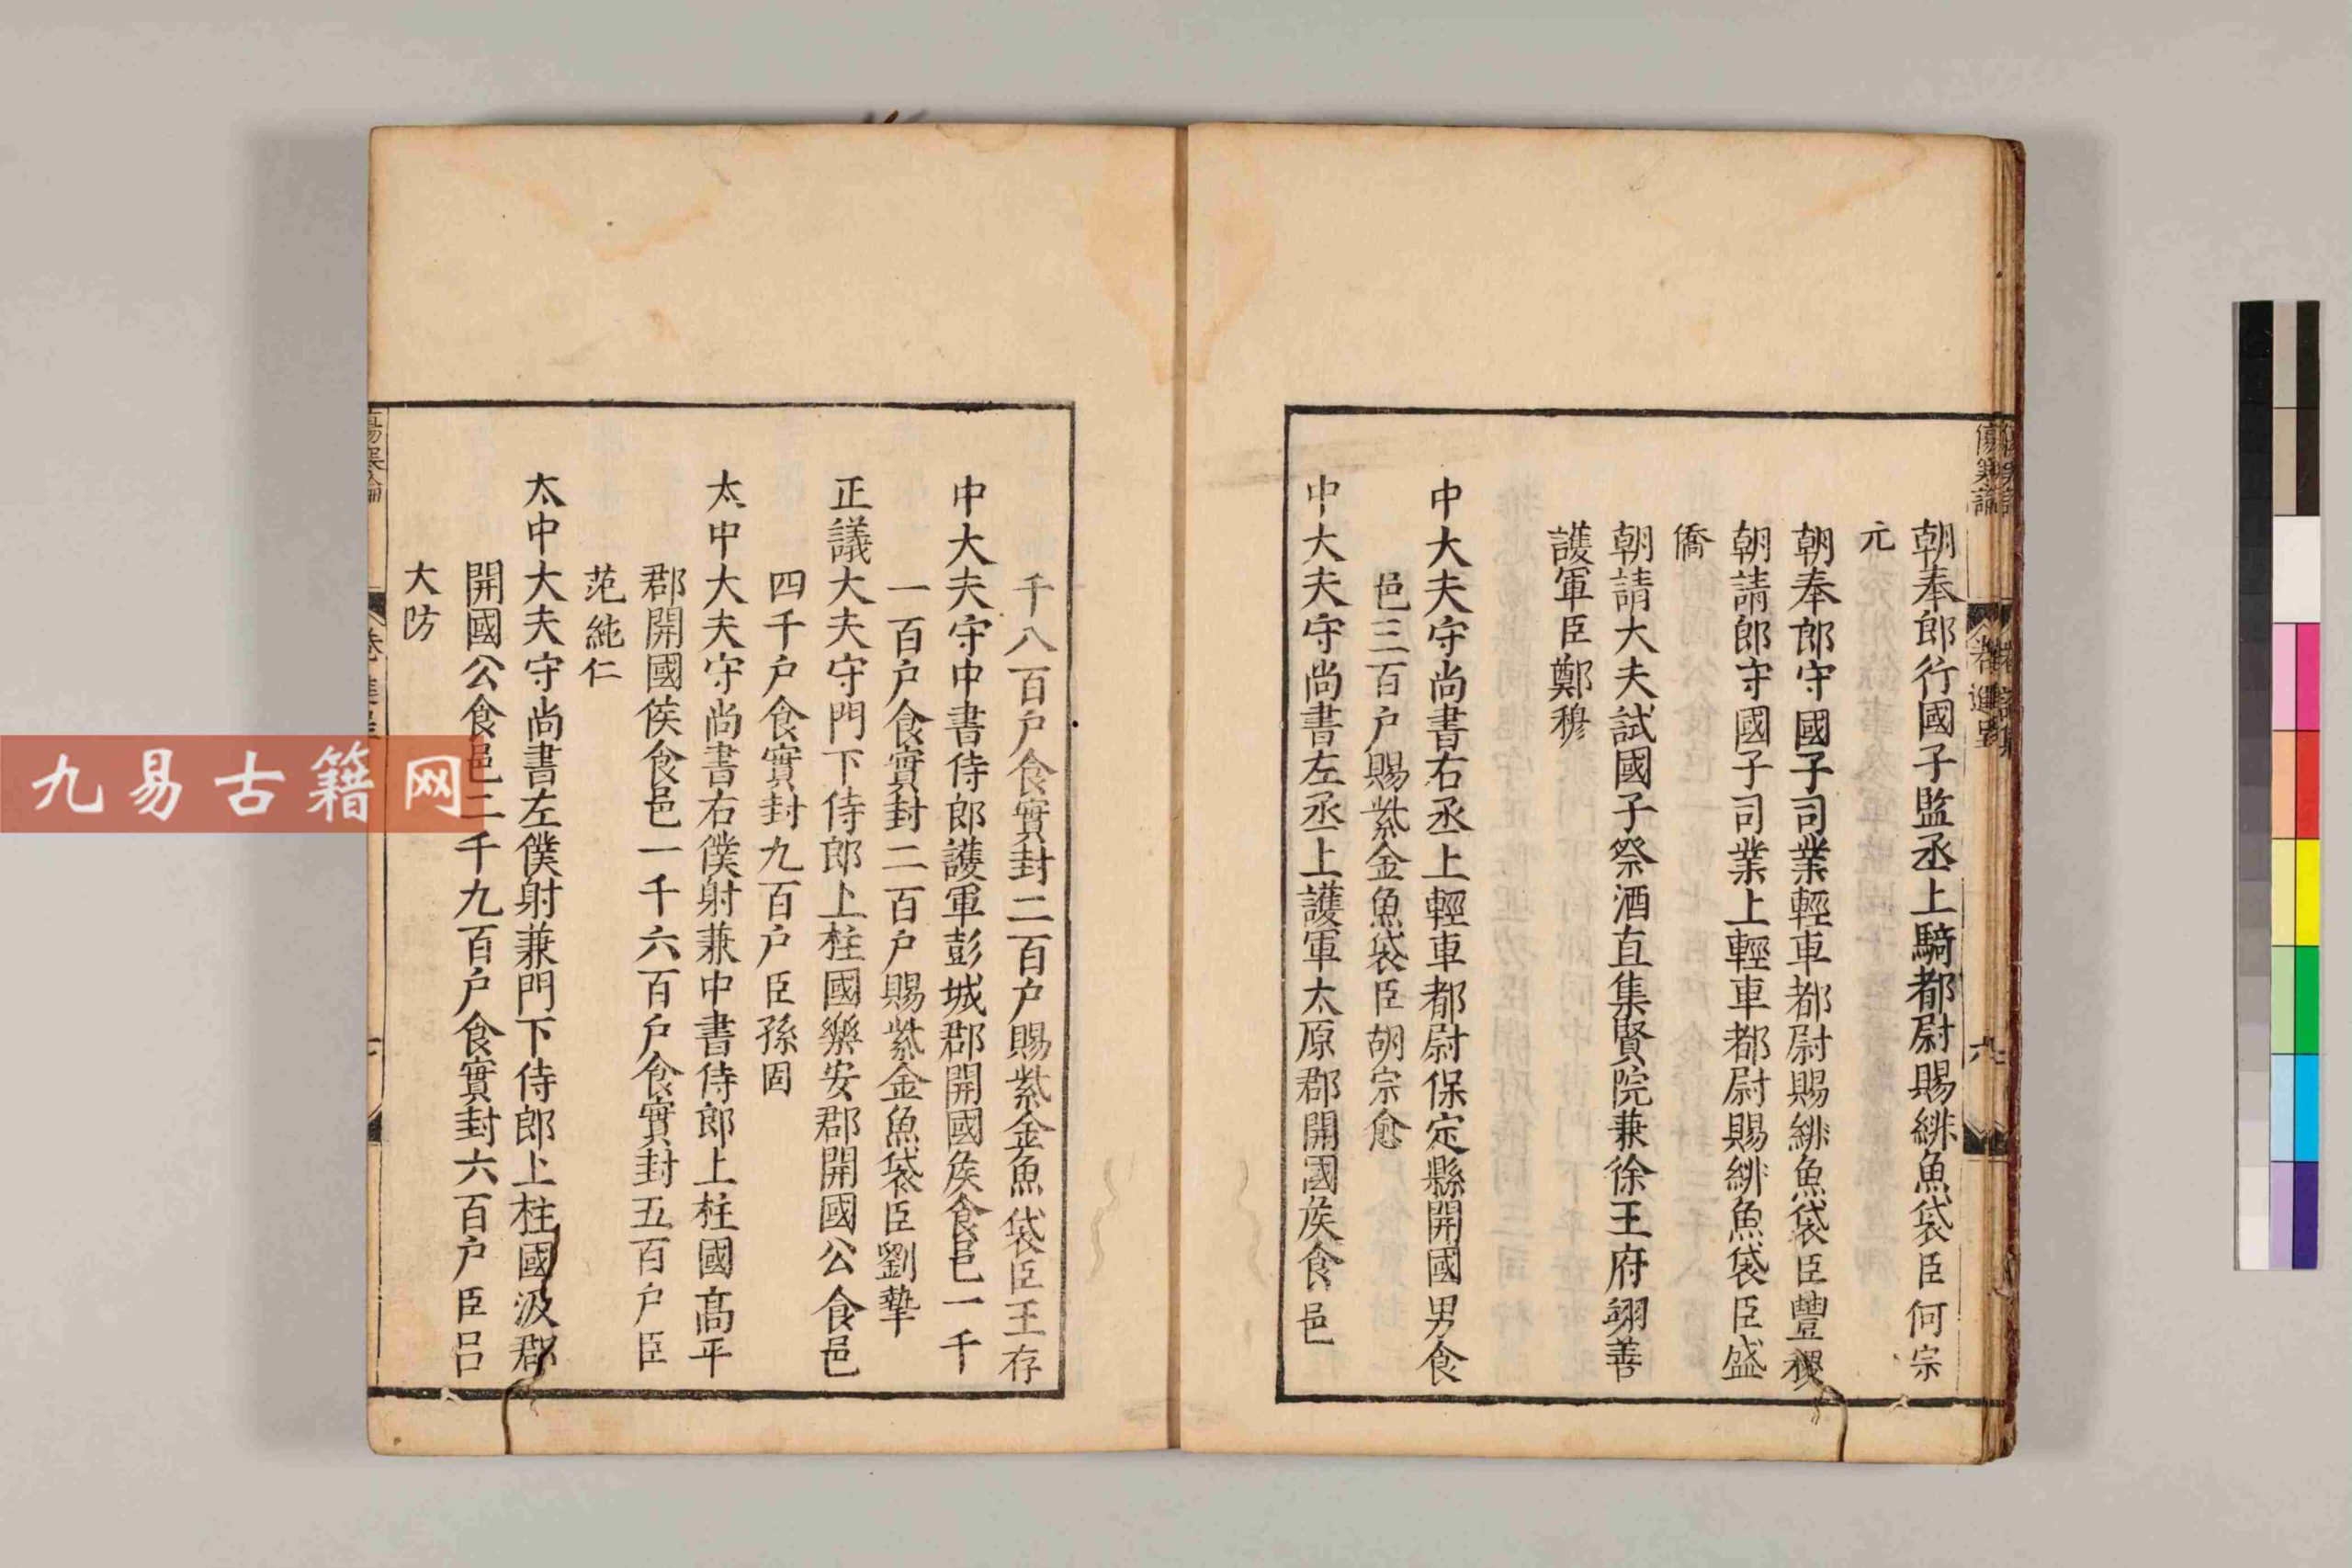 朝奉郎行國子監丞上騎都尉賜緋魚袋臣何宗
元
朝奉郎守國子司業輕車都尉賜緋魚袋臣豐稷
朝請郎守國子司業上輕車都尉賜緋魚袋臣盛
僑
朝請大夫試國子祭酒直集賢院兼徐王府翊善
護軍臣鄭穆
中大夫守尚書右丞上輕車都尉保定縣開國男食
邑三百户賜紫金魚袋臣胡宗愈
中大夫守尚書左丞上護軍太原郡開國矦食邑
千八百户食實封二百户賜紫金魚袋臣王存
中大夫守中書侍郎護軍彭城郡開國矦食邑一千
一百户食實封二百户賜紫金魚袋臣劉摯
正議大夫守門下侍郎上柱國樂安郡開國公食邑
四千户食實封九百户臣孫固
太中大夫守尚書右僕射兼中書侍郎上柱國髙平
郡開國侯食邑一千六百户食實封五百户臣
范純仁
太中大夫守尚書左僕射兼門下侍郎上柱國汲郡
開國公食邑二千九百户食實封六百户臣吕
大防
傷寒論
九易古籍网